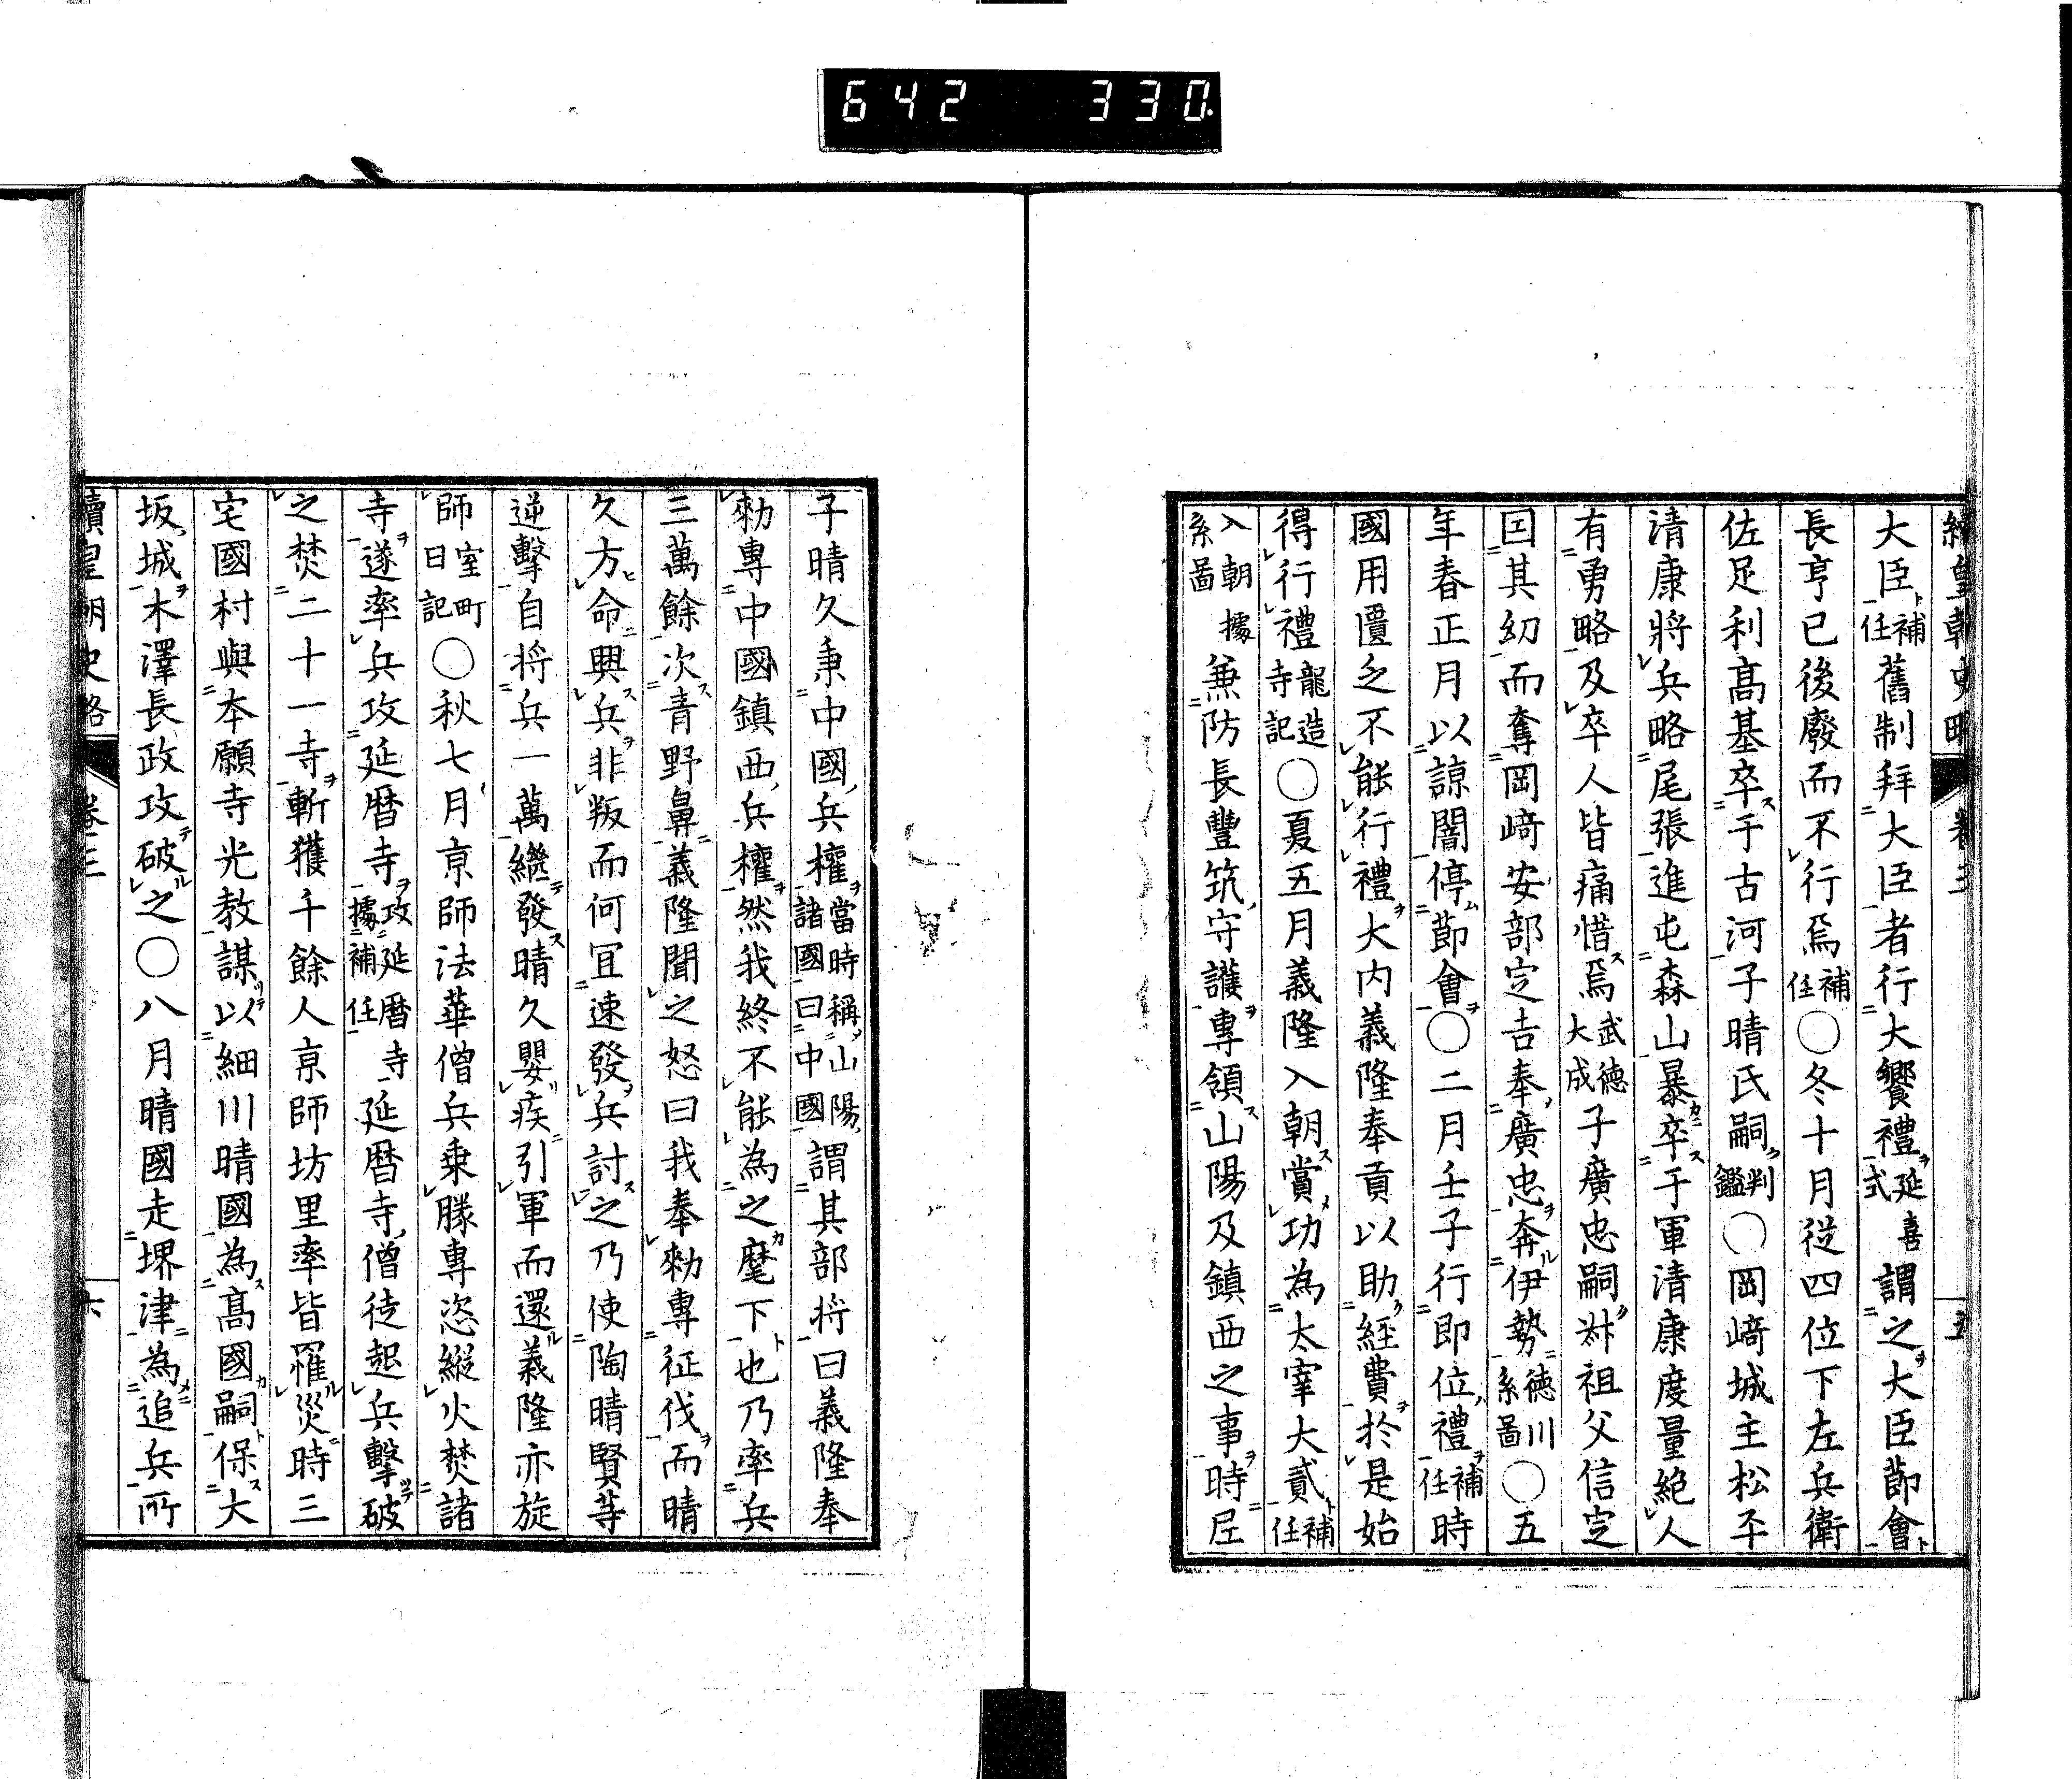 642 330.
續皇朝史略 卷三 五
大臣補任舊制拜大臣者行大饗禮延喜式謂之大臣節會
長亨已後廢而不行焉補任○冬十月從四位下左兵衛
佐足利高基卒于古河子晴氏嗣判鑑○岡﨑城主松平
清康將兵略尾張進屯森山暴卒于軍清康度量絕人
有勇略及卒人皆痛惜焉武德大成子廣忠嗣叔祖父信定
因其幼而奪岡﨑安部定吉奉廣忠奔伊勢德川系圖○五
年春正月以諒闇停節會○二月壬子行即位禮補任時
國用匱乏不能行禮大内義隆奉貢以助經費於是始
得行禮龍造寺記○夏五月義隆入朝賞功為太宰大貳補任
入朝據系圖兼防長豐筑守護專領山陽及鎮西之事時尼
子晴久秉中國兵權當時稱山陽諸國曰中國謂其部将曰義隆奉
勅專中國鎮西兵權然我終不能為之麾下也乃率兵
三萬餘次青野鼻義隆聞之怒曰我奉勅專征伐而晴
久方命興兵非叛而何宜速發兵討之乃使陶晴賢等
逆擊自将兵一萬繼發晴久嬰疾引軍而還義隆亦旋
師室町日記○秋七月京師法華僧兵乗勝專恣縱火焚諸
寺遂率兵攻延暦寺攻延暦寺據補任延暦寺僧徒起兵擊破
之焚二十一寺斬獲千餘人京師坊里率皆罹災時三
宅國村與本願寺光教謀以細川晴國為高國嗣保大
坂城木澤長政攻破之○八月晴國走堺津為追兵所
續皇朝史略 卷三 六